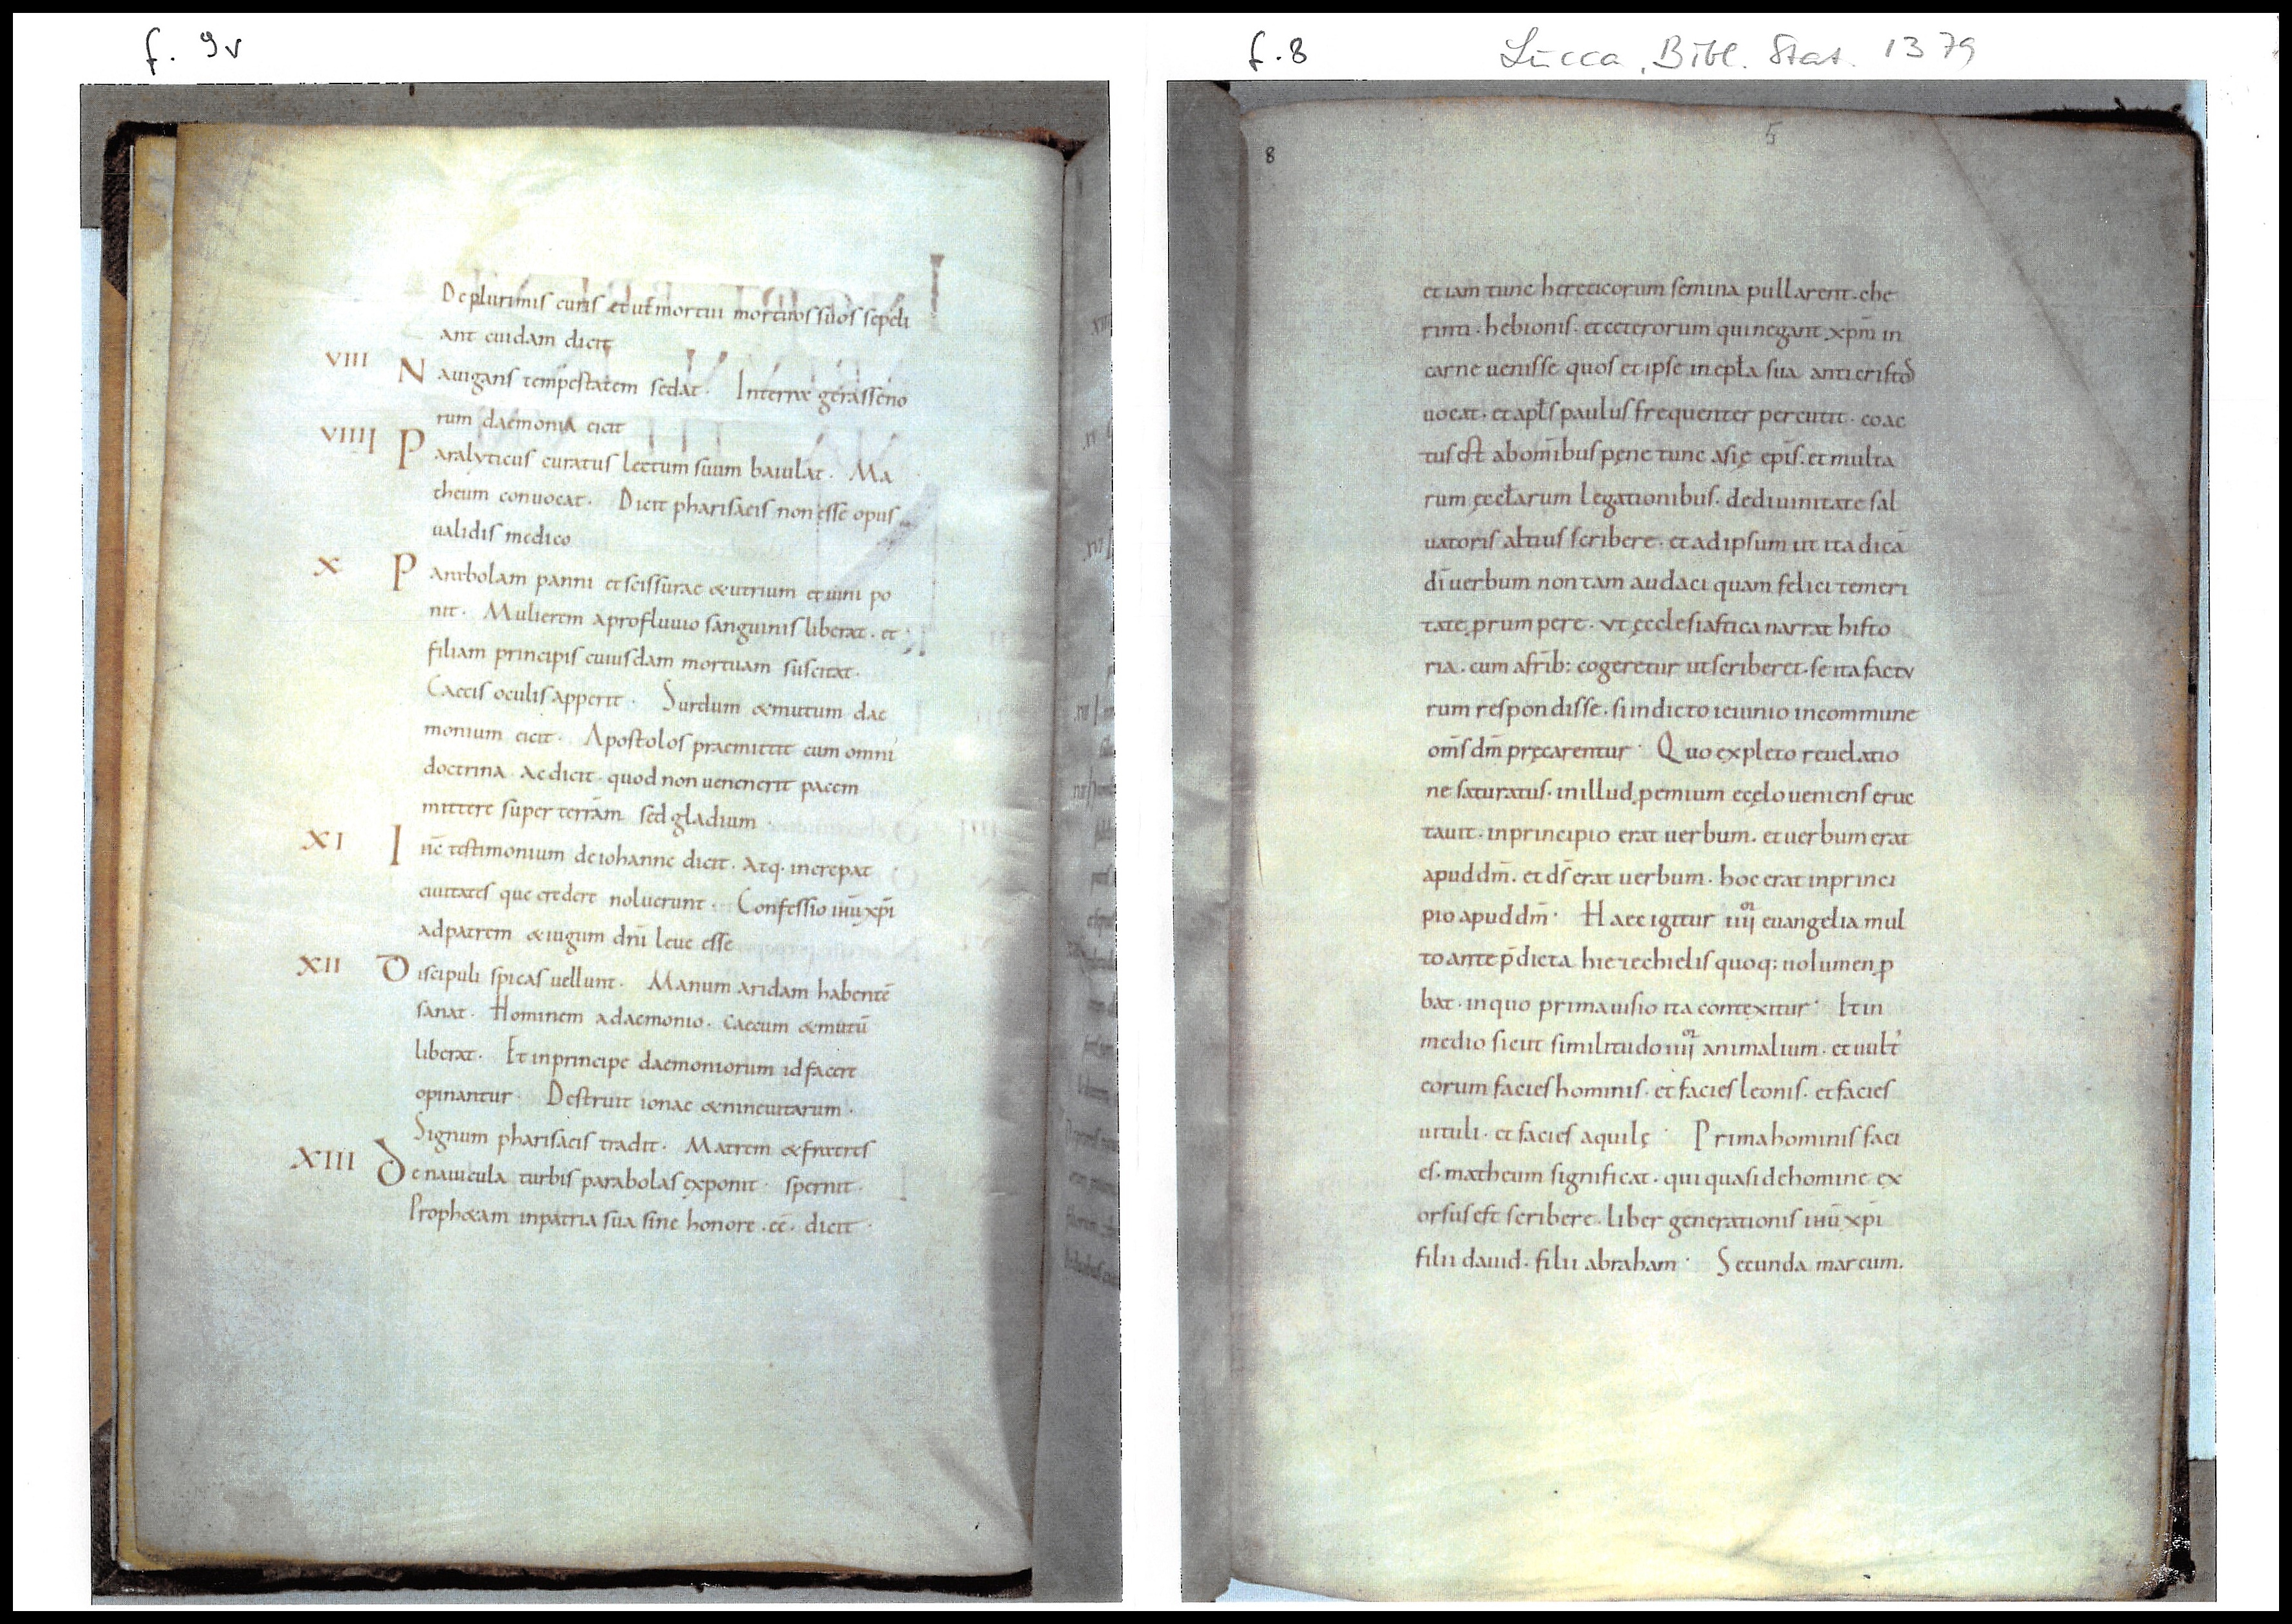 f. 9v
De plurimis curis et ut mortui mortuos suos sepeli
ant cuidam dicit
VIII Nauigans tempestatem sedat. In terra gerasseno
rum daemonia eicit
VIIII Paralyticus curatus lectum suum baiulat. Ma
theum conuocat. Dicit pharisaeis non esse opus
ualidis medico
X Parabolam panni et scissurae & utrium et uini po
nit. Mulierem a profluuio sanguinis liberat. et
filiam principis cuiusdam mortuam suscitat.
Caecis oculis apperit. Surdum & mutum dae
monium eicit. Apostolos praemittit cum omni
doctrina. Ac dicit. quod non uenenerit pacem
mittere super terram sed gladium.
XI Iñc testimonium de iohanne dicit. Atq. increpat
ciuitates que credere noluerunt. Confessio iħu xp̄i
ad patrem & iugum dn̄i leue esse
XII Discipuli spicas uellunt. Manum aridam habentē
sanat. Hominem a daemonio. caecum & mutū
liberat. Et in principe daemoniorum id facere
opinantur. Destruit ionae & nineuitarum.
Signum pharisaeis tradit. Matrem & fratres
XIII De nauicula turbis parabolas exponit. spernit.
Prophetam in patria sua sine honore. eē. dicit.
f. 8 Lucca, Bibl. Stat. 1379
8 5
etiam tunc hereticorum semina pullarent. che
rinti. hebionis. et ceterorum qui negant xp̄m in
carne uenisse quos et ipse in epła sua anticristos
uocat. et apłs paulus frequenter percutit. coac
tus est ab om̄ibus pęne tunc asię epīs. et multa
rum ęccłarum legationibus. de diuinitate sal
uatoris altius scribere. et ad ipsum ut ita dicā
dī uerbum non tam audaci quam felici temeri
tate ꝓrumpere. Vt ęcclesiastica narrat histo
ria. cum a fr̄ib: cogeretur ut scriberet. se ita factu
rum respondisse. si indicto ieiunio in commune
om̄s dm̄ pręcarentur. Quo expleto reuelatio
ne saturatus. in illud ꝓemium e cęlo ueniens eruc
tauit. in principio erat uerbum. et uerbum erat
apud dm̄. et ds̄ erat uerbum. hoc erat in princi
pio apud dm̄. Haec igitur iiij euangelia mul
to ante p̄dicta hiezechielis quoq: uolumen ꝓ
bat. in quo prima uisio ita contexitur. Et in
medio sicut similitudo iiij animalium. et uult'
eorum facies hominis. et facies leonis. et facies
uituli. et facies aquilę. Prima hominis faci
es. matheum significat. qui quasi de homine ex
orsus est scribere. liber generationis iħu xp̄i
filii dauid. filii abraham. Secunda marcum.